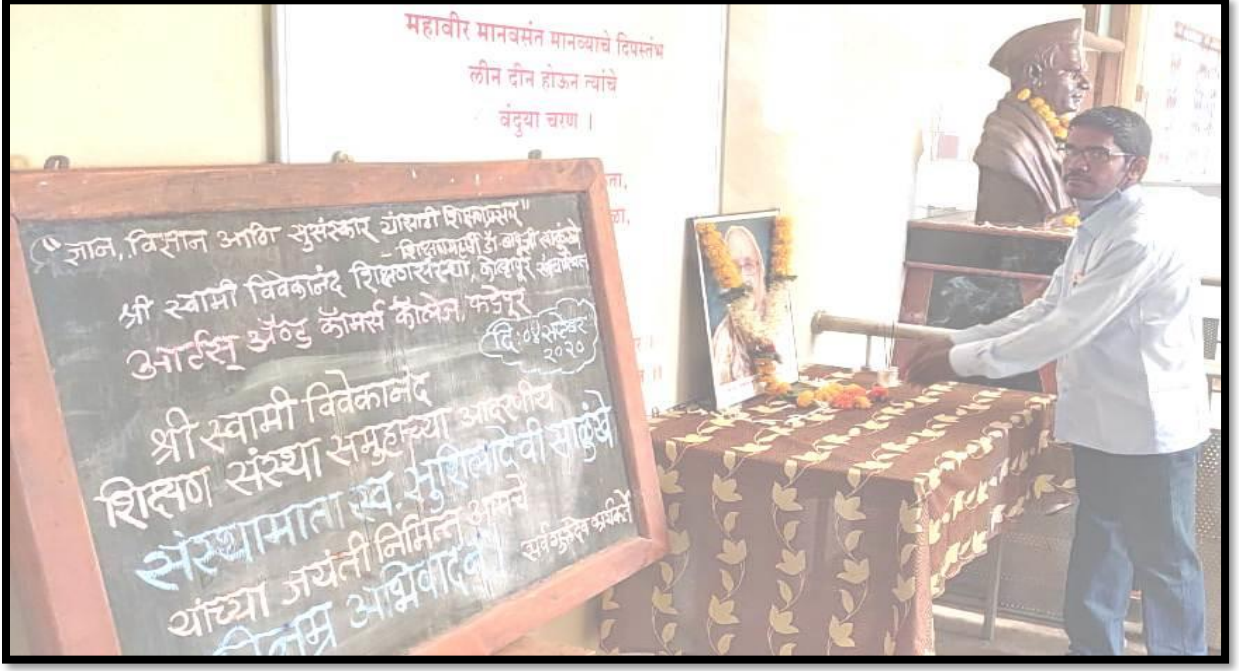 महावीर मानवसंत मानव्याचे दिपस्तंभ
लीन दीन होऊन त्यांचे
वंदुया चरण ।
"ज्ञान, विज्ञान आणि सुसंस्कार यांसाठी शिक्षणप्रसार"
- शिक्षणमहर्षी डॉ. बापूजी साळुंखे
श्री स्वामी विवेकानंद शिक्षणसंस्था, कोल्हापूर
आर्टस् ॲण्ड कॉमर्स कॉलेज, कडेपूर
दि: ०४ सप्टेंबर
२०२०
श्री स्वामी विवेकानंद
शिक्षण संस्था समुहाच्या आदरणीय
संस्थामाता स्व. सुशिलादेवी साळुंखे
यांच्या जयंती निमित्त आमचे
विनम्र अभिवादन
सर्व गुरुदेव कार्यकर्ते